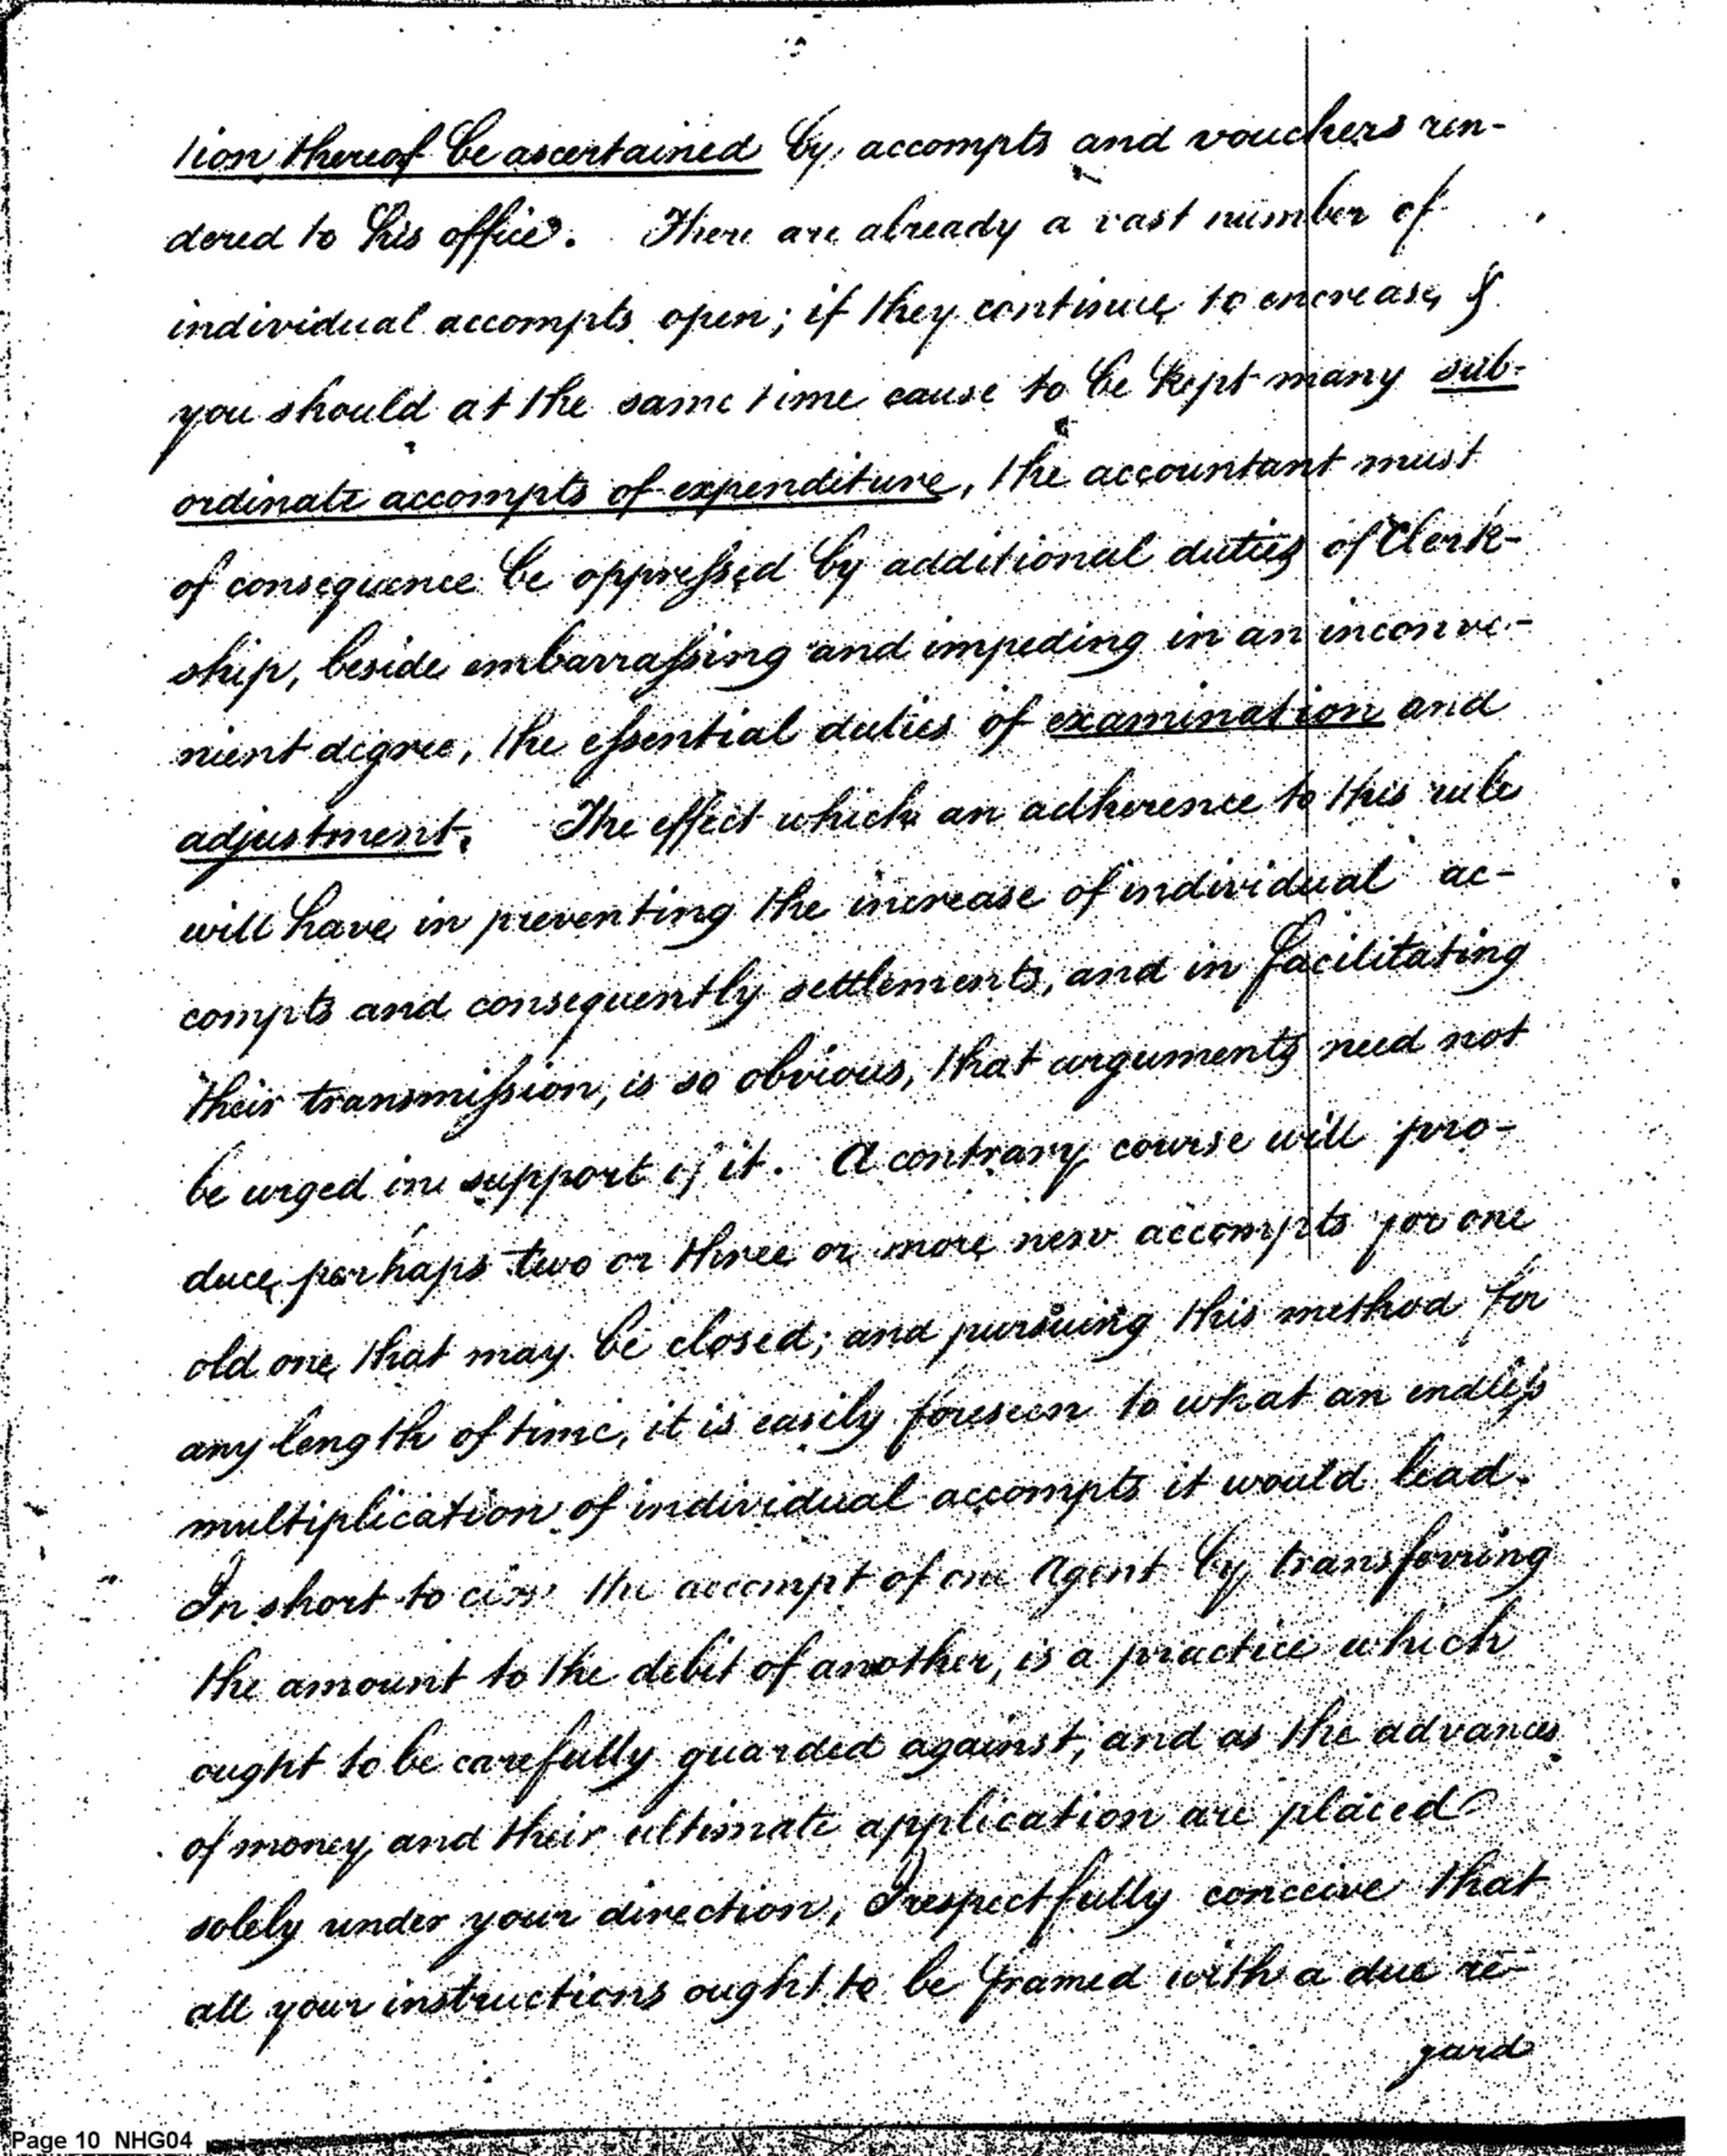 tion thereof be ascertained by accompts and vouchers ren-
dered to his office. There are already a vast number of
individual accompts open; if they continue to encrease, &
you should at the same time cause to be kept many sub-
ordinate accompts of expenditure, the accountant must
of consequence be oppressed by additional duties of Clerk-
ship, beside embarrassing and impeding in an inconve-
nient degree, the essential duties of examination and
adjustment. The effect which an adherence to this rule
will have in preventing the increase of individual ac-
compts and consequently settlements, and in facilitating
their transmission, is so obvious, that arguments need not
be urged in support of it. A contrary course will pro-
duce perhaps two or three or more new accompts for one
old one that may be closed; and pursuing this method for
any length of time, it is easily foreseen to what an endless
multiplication of individual accompts it would lead.
In short to the accompt of one Agent by transferring
the amount to the debit of another, is a practice which
ought to be carefully guarded against; and as the advances
of money and their ultimate application are placed
solely under your direction, I respectfully conceive that
all your instructions ought to be framed with a due re-
gard
Page 10 NHG04